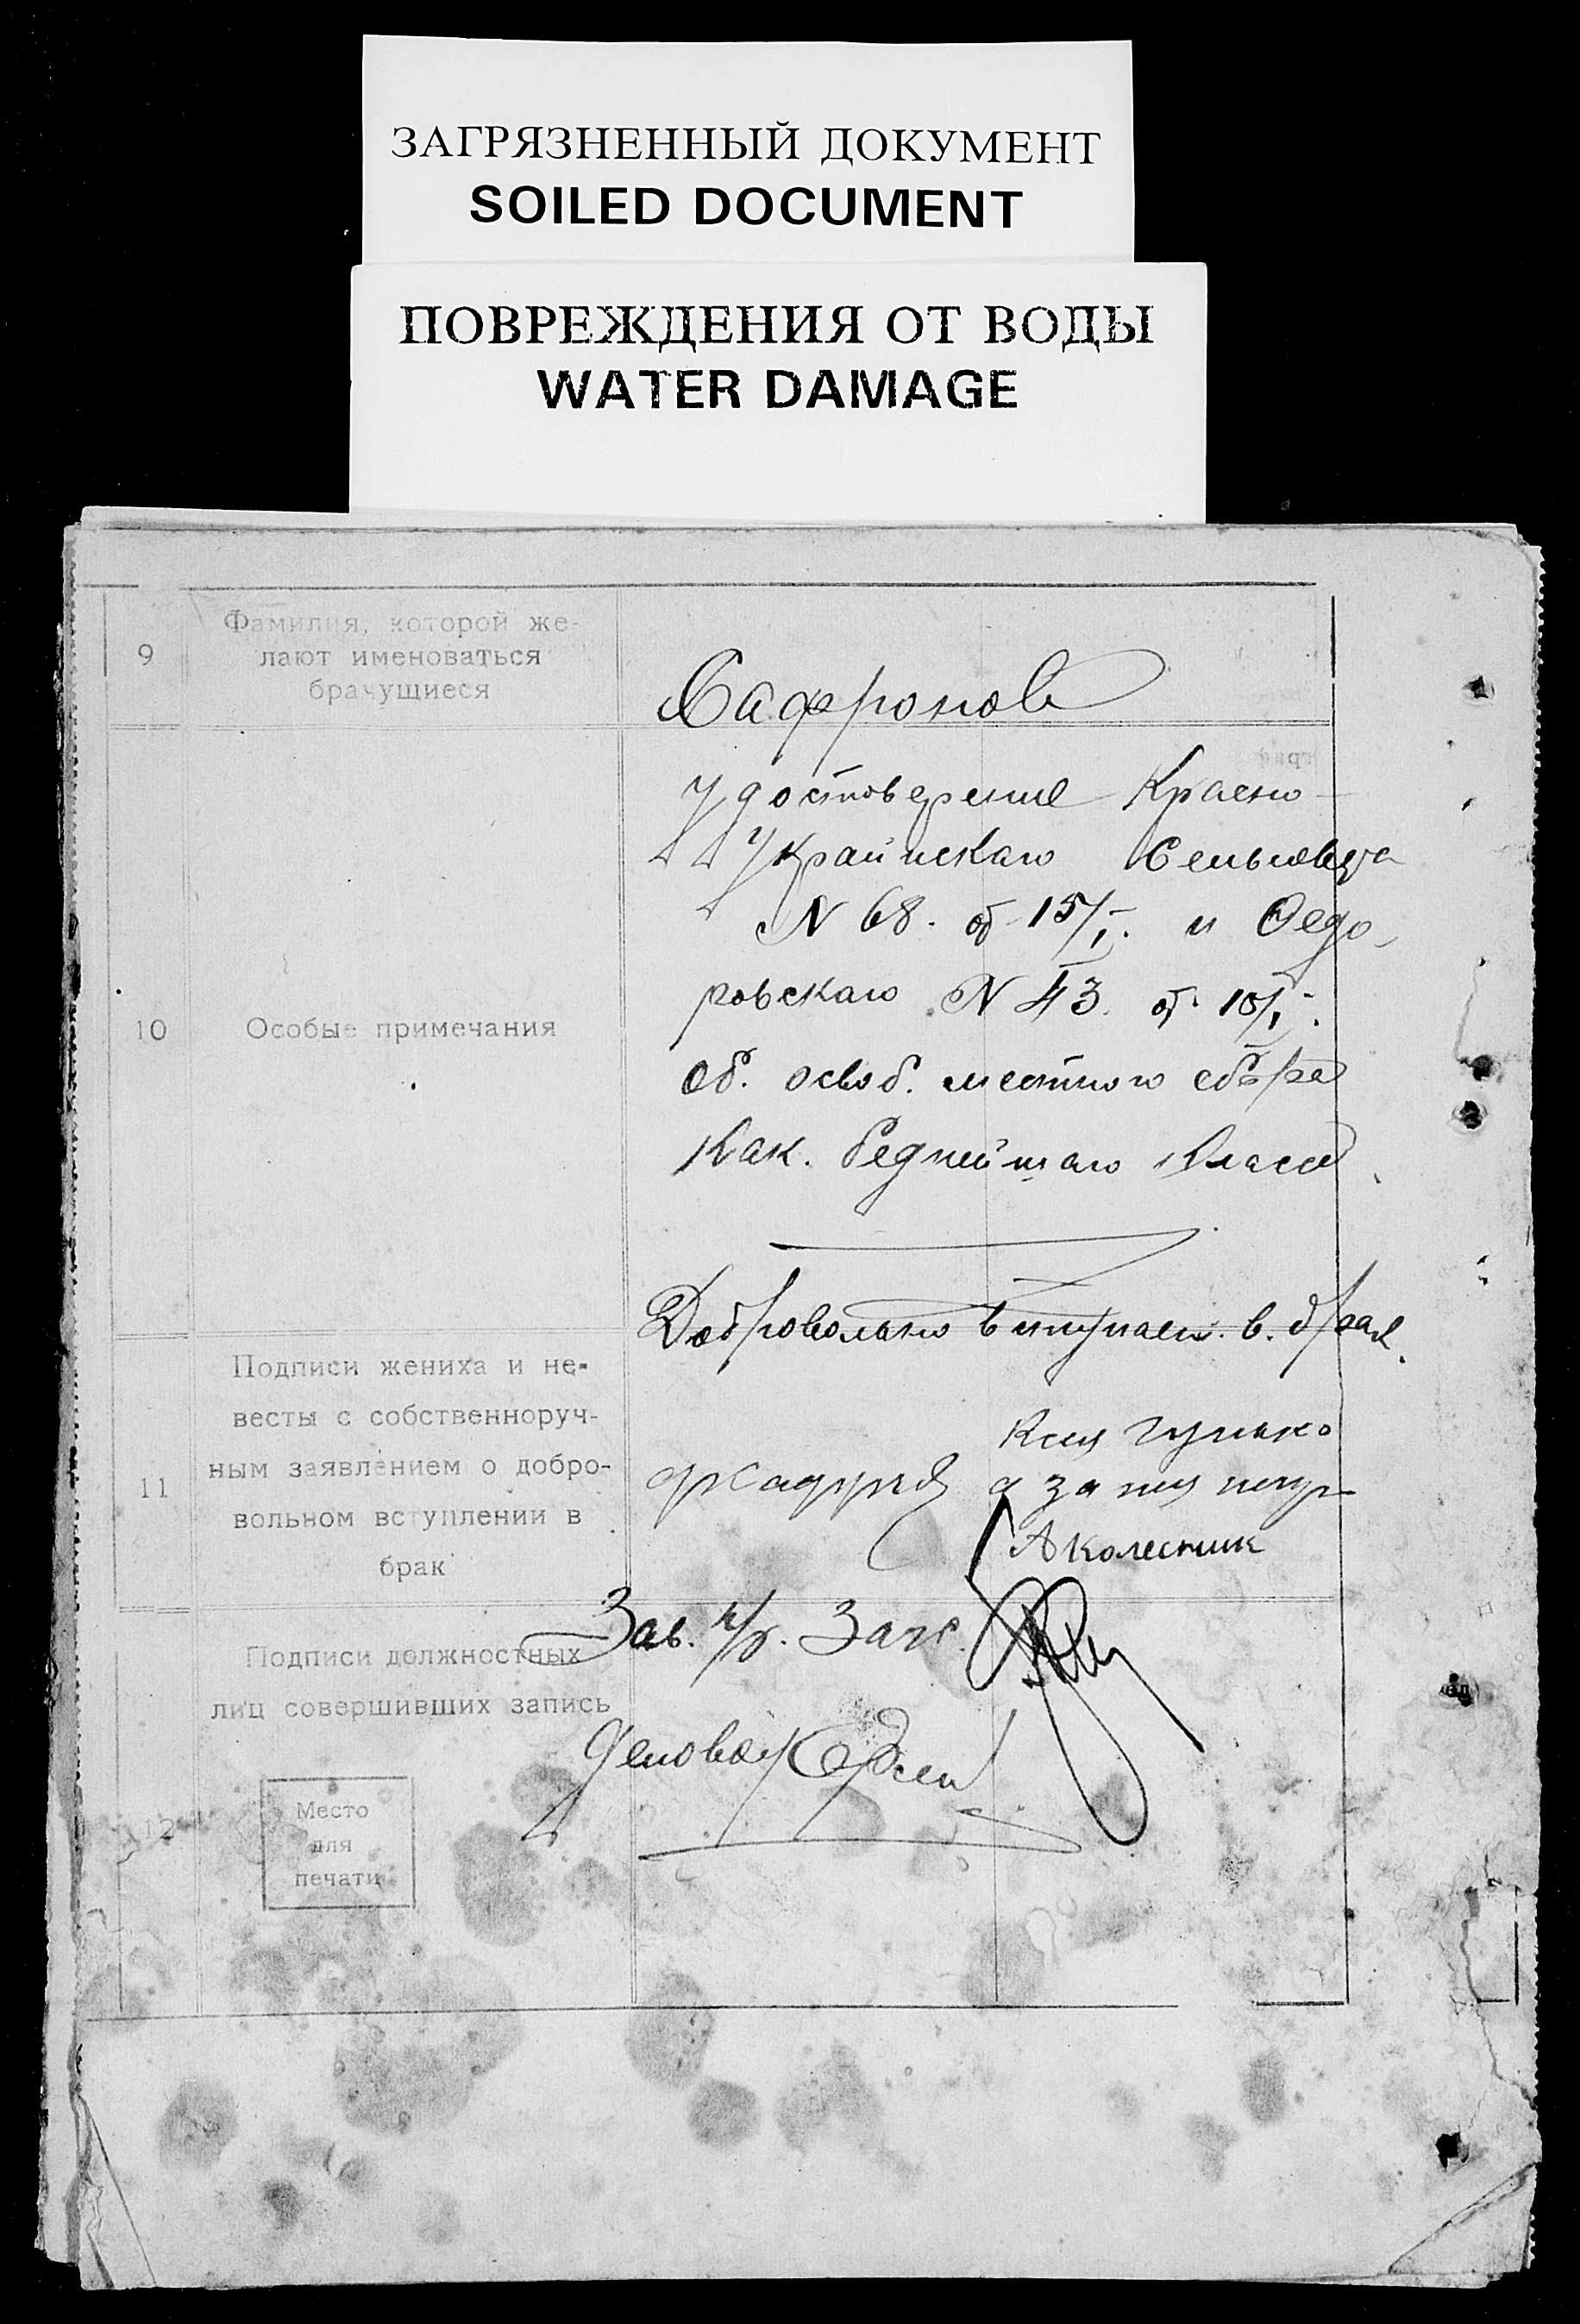 ЗАГРЯЗНЕННЫЙ ДОКУМЕНТ
SOILED DOCUMENT
ПОВРЕЖДЕНИЯ ОТ ВОДЫ
WATER DAMAGE
9
Фамилия, которой же-
лают именоваться
брачущиеся
Сафронов
10
Особые примечания
Удостоверение Красно-
Украинскаго Сельсовета
N 68. от 15/I. и Федо
ровскаго N 43. от 15/I.
Об. освоб. местного сбора
как. беднейшаго класса
Добровольно вступаем. в. брак.
11
Подписи жениха и не-
весты с собственноруч-
ным заявлением о добро-
вольном вступлении в
брак
Гунько
А Колесник
12
Подписи должностных
лиц совершивших запись
Зав. Загс.
Деловод
Место
для
печати